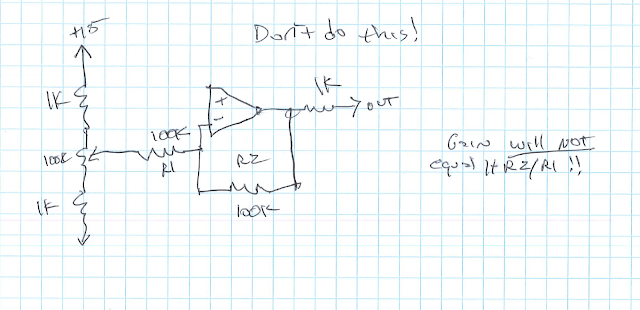 +15
Don't do this!
1K
1K
→ OUT
+
-
100K
100K
R1
R2
1K
100K
Gain will NOT
equal 1+R2/R1 !!